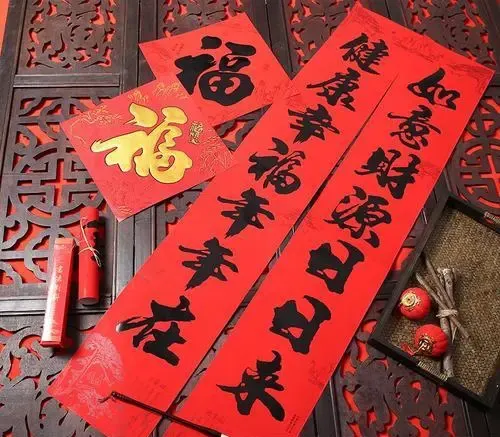 福
福
如意財源日日来
健康幸福年年在